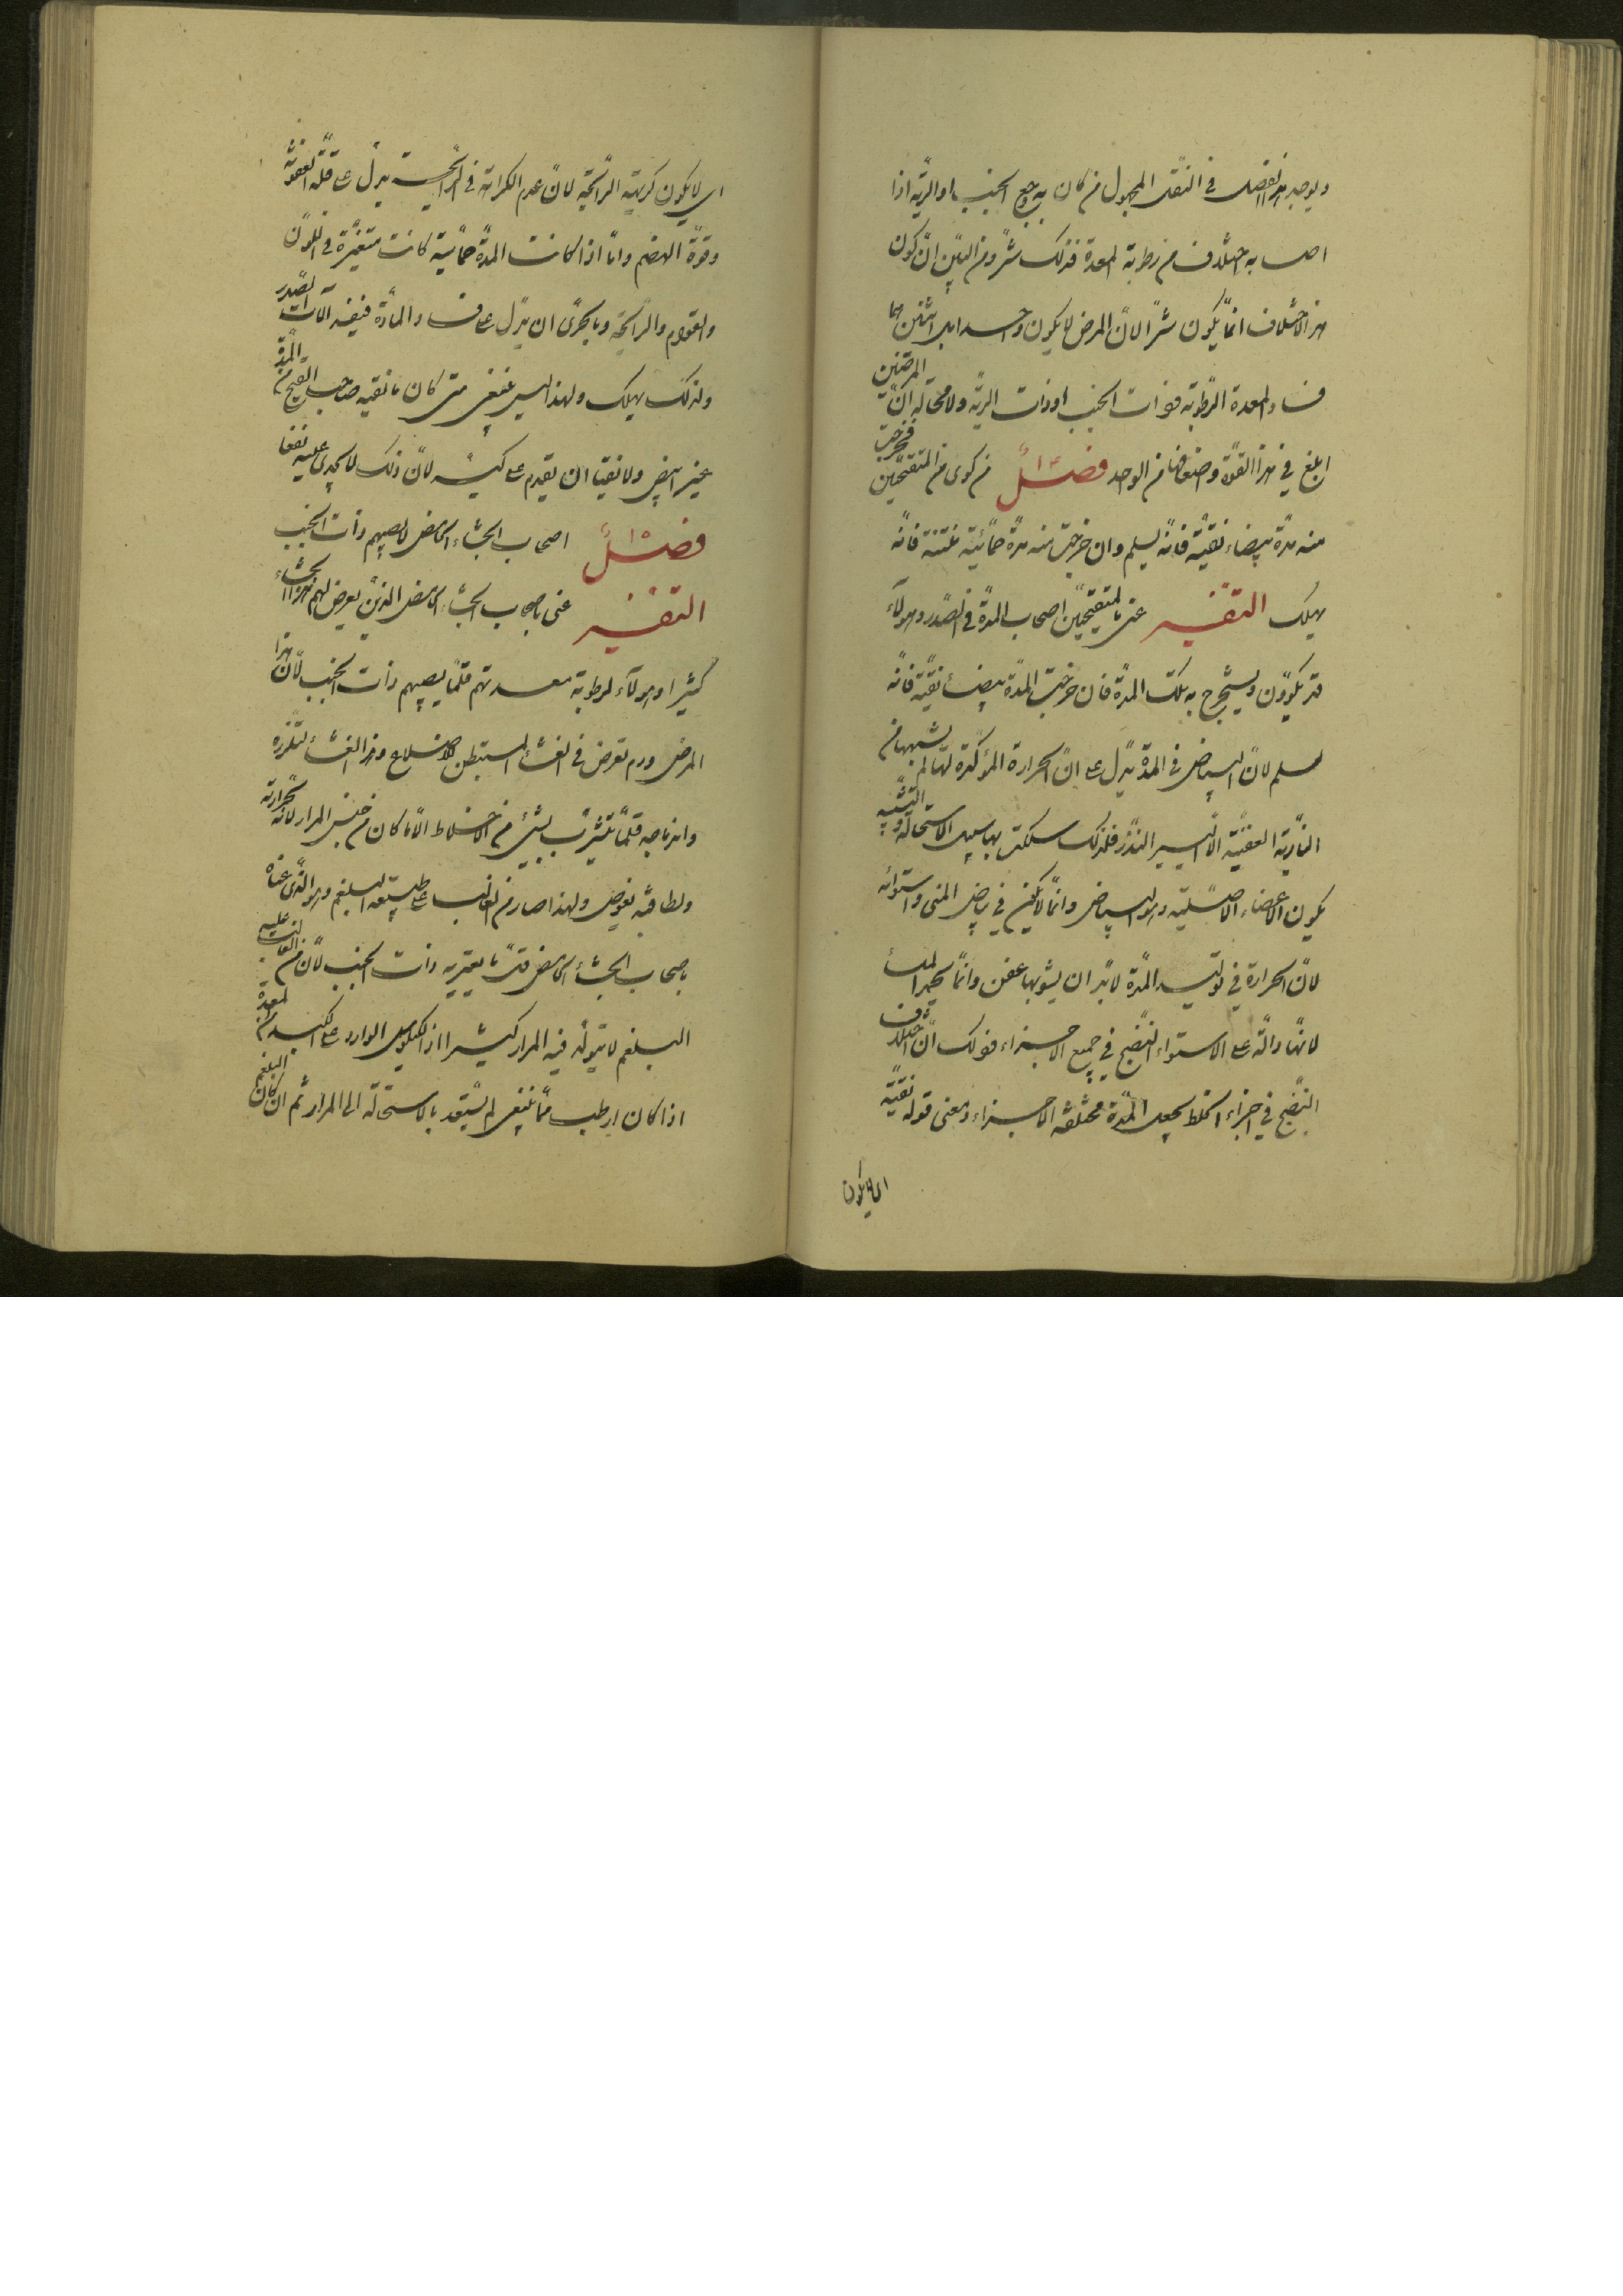 ويوجد هذا الفصل في النقل المجهول من كان به وجع الجنب او الرية اذا
اصابه اختلاف من رطوبة المعدة فذلك شر ومن البين ان كون
هذا الاختلاف انما يكون شرا لان المرض لا يكون واحدا بل اثنين هما
فساد المعدة الرطوبة وذات الجنب او ذات الرية ولا محالة ان المرضين
ابلغ في هذا القوة واضعافها من الواحد فصل ١٤ من كوى من المتقيحين فخرجت
منه مدة بيضاء نقية فانه يسلم وان خرجت منه مدة حمائية منتنة فانه
يهلك التفسير عنى بالمتقيحين اصحاب المدة في الصدر وهولاء
قد يكوون ويستخرج به تلك المدة فان خرجت المدة بيضاء نقية فانه
يسلم لان البياض في المدة يدل على ان الحرارة المؤكدة لها لم يشبهها من
النارية العفنية الا اليسير النذر فلذلك سلكت بها سبيل الاستحالة والتشبيه
بكون الاعضاء الاصلية وهو البياض وانما لا يكفى في بياض المني واستوائه
لان الحرارة في توليد المدة لا بد ان يشوبها عفن وانما يحمد الملساء
لانها دالة على الاستواء النضج في جميع الاجزاء وذلك ان اختلاف
النضج في اجزاء الخلط يجعل المدة مختلفة الاجزاء ومعنى قوله نقية
اي لا يكون
اي لا يكون كريهة الرائحة لان عدم الكراهة في الرائحة يدل على قلة العفونة
وقوة الهضم واما اذا كانت المدة حمائية كانت متغيرة في اللون
والقوام والرائحة وبالحرى ان يدل على فساد المادة فيفسد آلات الصدر
ولذلك يهلك ولهذا ليس ينبغي متى كان ما نقيه صاحب القيح من المدة
غير ابيض ولا نقيا ان يقدم على كيه لان ذلك لا يجدي عليه نفعا
فصل ١٥ اصحاب الجشاء الحامض لا يصيبهم ذات الجنب
التفسير عنى باصحاب الجشاء الحامض الذين يعرض لهم هذا الجشاء
كثيرا وهولاء لرطوبة معدتهم قلما يصيبهم ذات الجنب لان هذا
المرض ورم تعرض في الغشاء المستبطن للاضلاع وهذا الغشاء لتلززه
واندماجه قلما يتشرب بشيء من الاخلاط الا ما كان من جنس المرار لانه بحرارته
ولطافته يغوص ولهذا صار من الغالب على طبيعته البلغم وهو الذي عناه
باصحاب الجشاء الحامض قل ما يعتريه ذات الجنب لان من الغالب عليه
البلغم لا يتولد فيه المرار كثيرا اذ الكيلوس الوارد على الكبد من المعدة
اذا كان ارطب مما ينبغي لم يستعد بالاستحالة الى المرار ثم ان كان البلغم